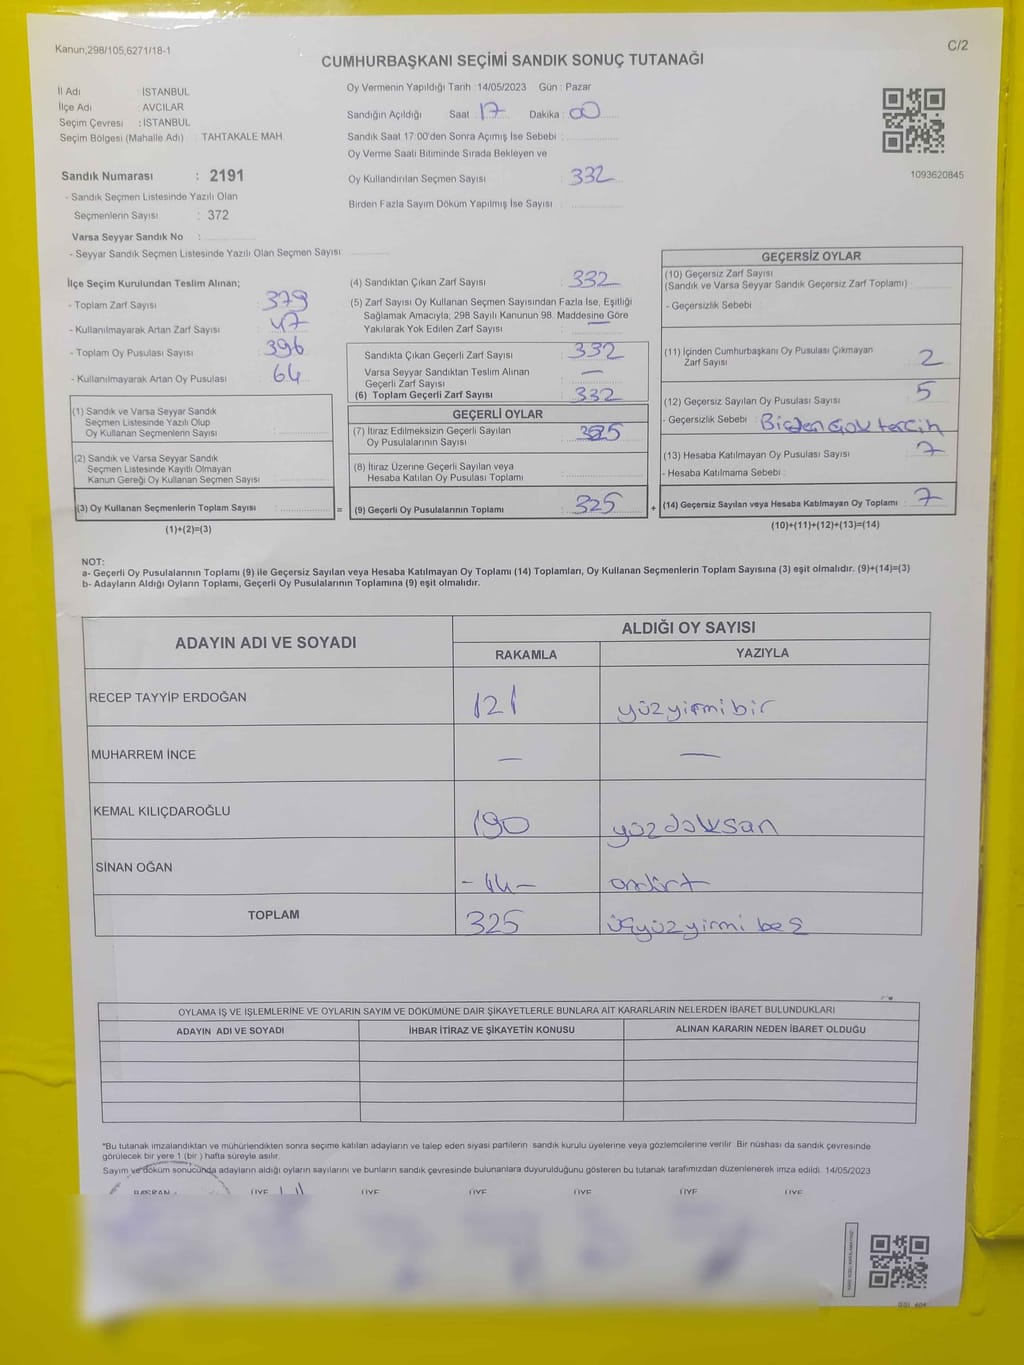 Kanun;298/105,6271/18-1
C/2
CUMHURBAŞKANI SEÇİMİ SANDIK SONUÇ TUTANAĞI
İl Adı : İSTANBUL
İlçe Adı : AVCILAR
Seçim Çevresi : İSTANBUL
Seçim Bölgesi (Mahalle Adı) : TAHTAKALE MAH.
Sandık Numarası : 2191
- Sandık Seçmen Listesinde Yazılı Olan
Seçmenlerin Sayısı : 372
Varsa Seyyar Sandık No :
- Seyyar Sandık Seçmen Listesinde Yazılı Olan Seçmen Sayısı:
Oy Vermenin Yapıldığı Tarih : 14/05/2023 Gün : Pazar
Sandığın Açıldığı Saat : 17 Dakika : 00
Sandık Saat 17:00'den Sonra Açımış İse Sebebi :
Oy Verme Saati Bitiminde Sırada Bekleyen ve
Oy Kullandırılan Seçmen Sayısı : 332
Birden Fazla Sayım Döküm Yapılmış İse Sayısı :
1093620845
İlçe Seçim Kurulundan Teslim Alınan;
- Toplam Zarf Sayısı : 379
- Kullanılmayarak Artan Zarf Sayısı : 47
- Toplam Oy Pusulası Sayısı : 396
- Kullanılmayarak Artan Oy Pusulası : 64
(1) Sandık ve Varsa Seyyar Sandık
Seçmen Listesinde Yazılı Olup
Oy Kullanan Seçmenlerin Sayısı :
(2) Sandık ve Varsa Seyyar Sandık
Seçmen Listesinde Kayıtlı Olmayan
Kanun Gereği Oy Kullanan Seçmen Sayısı :
(3) Oy Kullanan Seçmenlerin Toplam Sayısı : =
(1)+(2)=(3)
(4) Sandıktan Çıkan Zarf Sayısı : 332
(5) Zarf Sayısı Oy Kullanan Seçmen Sayısından Fazla İse, Eşitliği
Sağlamak Amacıyla, 298 Sayılı Kanunun 98. Maddesine Göre
Yakılarak Yok Edilen Zarf Sayısı : —
Sandıkta Çıkan Geçerli Zarf Sayısı : 332
Varsa Seyyar Sandıktan Teslim Alınan
Geçerli Zarf Sayısı : —
(6) Toplam Geçerli Zarf Sayısı : 332
GEÇERLİ OYLAR
(7) İtiraz Edilmeksizin Geçerli Sayılan
Oy Pusulalarının Sayısı : 325
(8) İtiraz Üzerine Geçerli Sayılan veya
Hesaba Katılan Oy Pusulası Toplamı :
(9) Geçerli Oy Pusulalarının Toplamı : 325 +
GEÇERSİZ OYLAR
(10) Geçersiz Zarf Sayısı
(Sandık ve Varsa Seyyar Sandık Geçersiz Zarf Toplamı) :
- Geçersizlik Sebebi :
(11) İçinden Cumhurbaşkanı Oy Pusulası Çıkmayan
Zarf Sayısı : 2
(12) Geçersiz Sayılan Oy Pusulası Sayısı : 5
- Geçersizlik Sebebi : Birden Çok tercih
(13) Hesaba Katılmayan Oy Pusulası Sayısı : 7
- Hesaba Katılmama Sebebi :
(14) Geçersiz Sayılan veya Hesaba Katılmayan Oy Toplamı : 7
(10)+(11)+(12)+(13)=(14)
NOT:
a- Geçerli Oy Pusulalarının Toplamı (9) ile Geçersiz Sayılan veya Hesaba Katılmayan Oy Toplamı (14) Toplamları, Oy Kullanan Seçmenlerin Toplam Sayısına (3) eşit olmalıdır. (9)+(14)=(3)
b- Adayların Aldığı Oyların Toplamı, Geçerli Oy Pusulalarının Toplamına (9) eşit olmalıdır.
ADAYIN ADI VE SOYADI
ALDIĞI OY SAYISI
RAKAMLA YAZIYLA
RECEP TAYYİP ERDOĞAN 121 yüzyirmibir
MUHARREM İNCE — —
KEMAL KILIÇDAROĞLU 190 yüzdoksan
SİNAN OĞAN -14- ondört
TOPLAM 325 üçyüzyirmi beş
OYLAMA İŞ VE İŞLEMLERİNE VE OYLARIN SAYIM VE DÖKÜMÜNE DAİR ŞİKAYETLERLE BUNLARA AİT KARARLARIN NELERDEN İBARET BULUNDUKLARI
ADAYIN ADI VE SOYADI İHBAR İTİRAZ VE ŞİKAYETİN KONUSU ALINAN KARARIN NEDEN İBARET OLDUĞU
*Bu tutanak imzalandıktan ve mühürlendikten sonra seçime katılan adayların ve talep eden siyasi partilerin sandık kurulu üyelerine veya gözlemcilerine verilir. Bir nüshası da sandık çevresinde
görülecek bir yere 1 (bir ) hafta süreyle asılır.
Sayım ve döküm sonucunda adayların aldığı oyların sayılarını ve bunların sandık çevresinde bulunanlara duyurulduğunu gösteren bu tutanak tarafımızdan düzenlenerek imza edildi. 14/05/2023
BAŞKAN ÜYE ÜYE ÜYE ÜYE ÜYE ÜYE